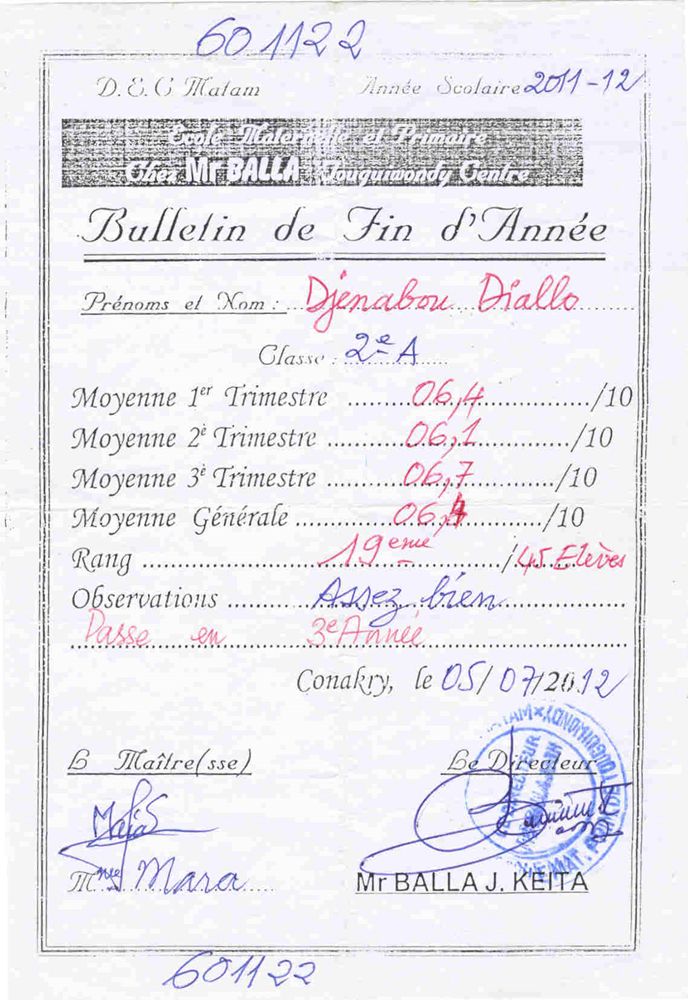 601122
D.E.C Matam Année Scolaire 2011-12
Ecole Maternelle et Primaire
Chez Mr BALLA Touguiwondy Centre
Bulletin de Fin d'Année
Prénoms et Nom : Djénabou Diallo
Classe : 2e A
Moyenne 1er Trimestre 06,4 /10
Moyenne 2è Trimestre 06,1 /10
Moyenne 3è Trimestre 06,7 /10
Moyenne Générale 06,4 /10
Rang 19eme /45 Elèves
Observations Assez bien
Passe en 3e Année
Conakry, le 05/07/2012
L Maître(sse) Le Directeur
Mme Mara Mr BALLA J. KEITA
601122